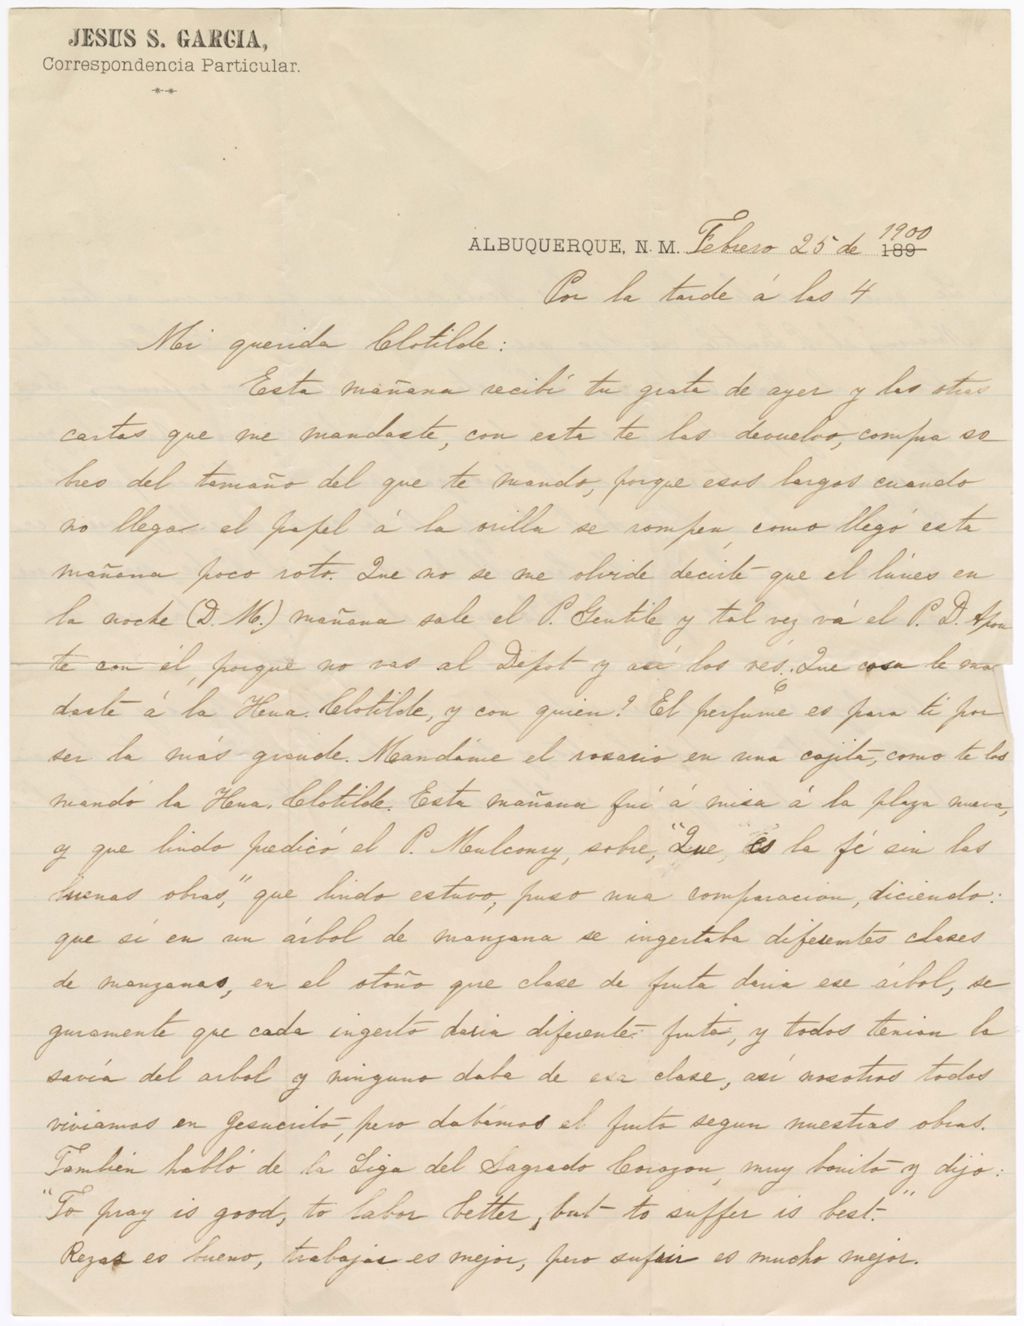 JESUS S. GARCIA,
Correspondencia Particular.
ALBUQUERQUE, N. M. Febrero 25 de 1900 189
Por la tarde á las 4
Mi querida Clotilde:
Esta mañana recibí tu grata de ayer y las otras
cartas que me mandaste, con esta te las devuelvo, compra so
bres del tamaño del que te mando, porque esos largos cuando
no llega el papel á la orilla se rompen, como llegó esta
mañana poco roto. Que no se me olvide decirte que el lúnes en
la noche (D. M.) mañana sale el P. Gentile y tal vez vá el P. D. Apon
te con él, porque no vas al Depot y así los vés. Que cosa le man
daste á la Hna. Clotilde, y con quien? El perfume es para ti por
ser la más grande. Mandáme el rosario en una cajita, como te los
mandó la Hna. Clotilde. Esta mañana fuí á misa á la plaza nueva,
y que lindo predicó el P. Mulconry, sobre, "Que es la fé sin las
buenas obras," que lindo estuvo, puso una comparacion, diciendo:
que si en un árbol de manzana se ingertaba diferentes clases
de manzanas, en el otoño que clase de fruta daria ese árbol, se
guramente que cada ingerto daria diferente fruta, y todos tenian la
savía del arbol y ninguno daba de esa clase, así nosotros todos
viviamos en Jesucristo, pero dabámos el fruto segun nuestras obras.
También habló de la Liga del Sagrado Corazon, muy bonito y dijo:
"To pray is good, to labor better, but to suffer is best."
Rezar es bueno, trabajar es mejor, pero sufrir es mucho mejor.